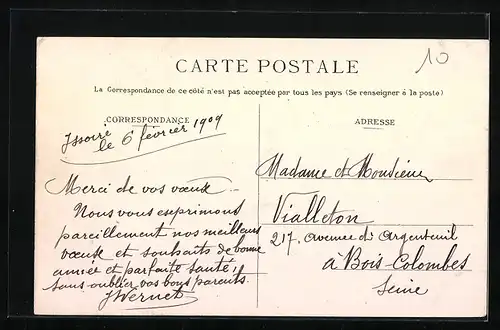 10
CARTE POSTALE
La Correspondance de ce côté n'est pas acceptée par tous les pays (Se renseigner à la poste)
CORRESPONDANCE
Issoire
le 6 février 1909
Merci de vos vœux
Nous vous exprimons
pareillement nos meilleurs
vœux et souhaits de bonne
année et parfaite santé,
sans oublier vos bons parents.
JVernet
ADRESSE
Madame et Monsieur
Vialleton
217, avenue d'Argenteuil
à Bois-Colombes
Seine